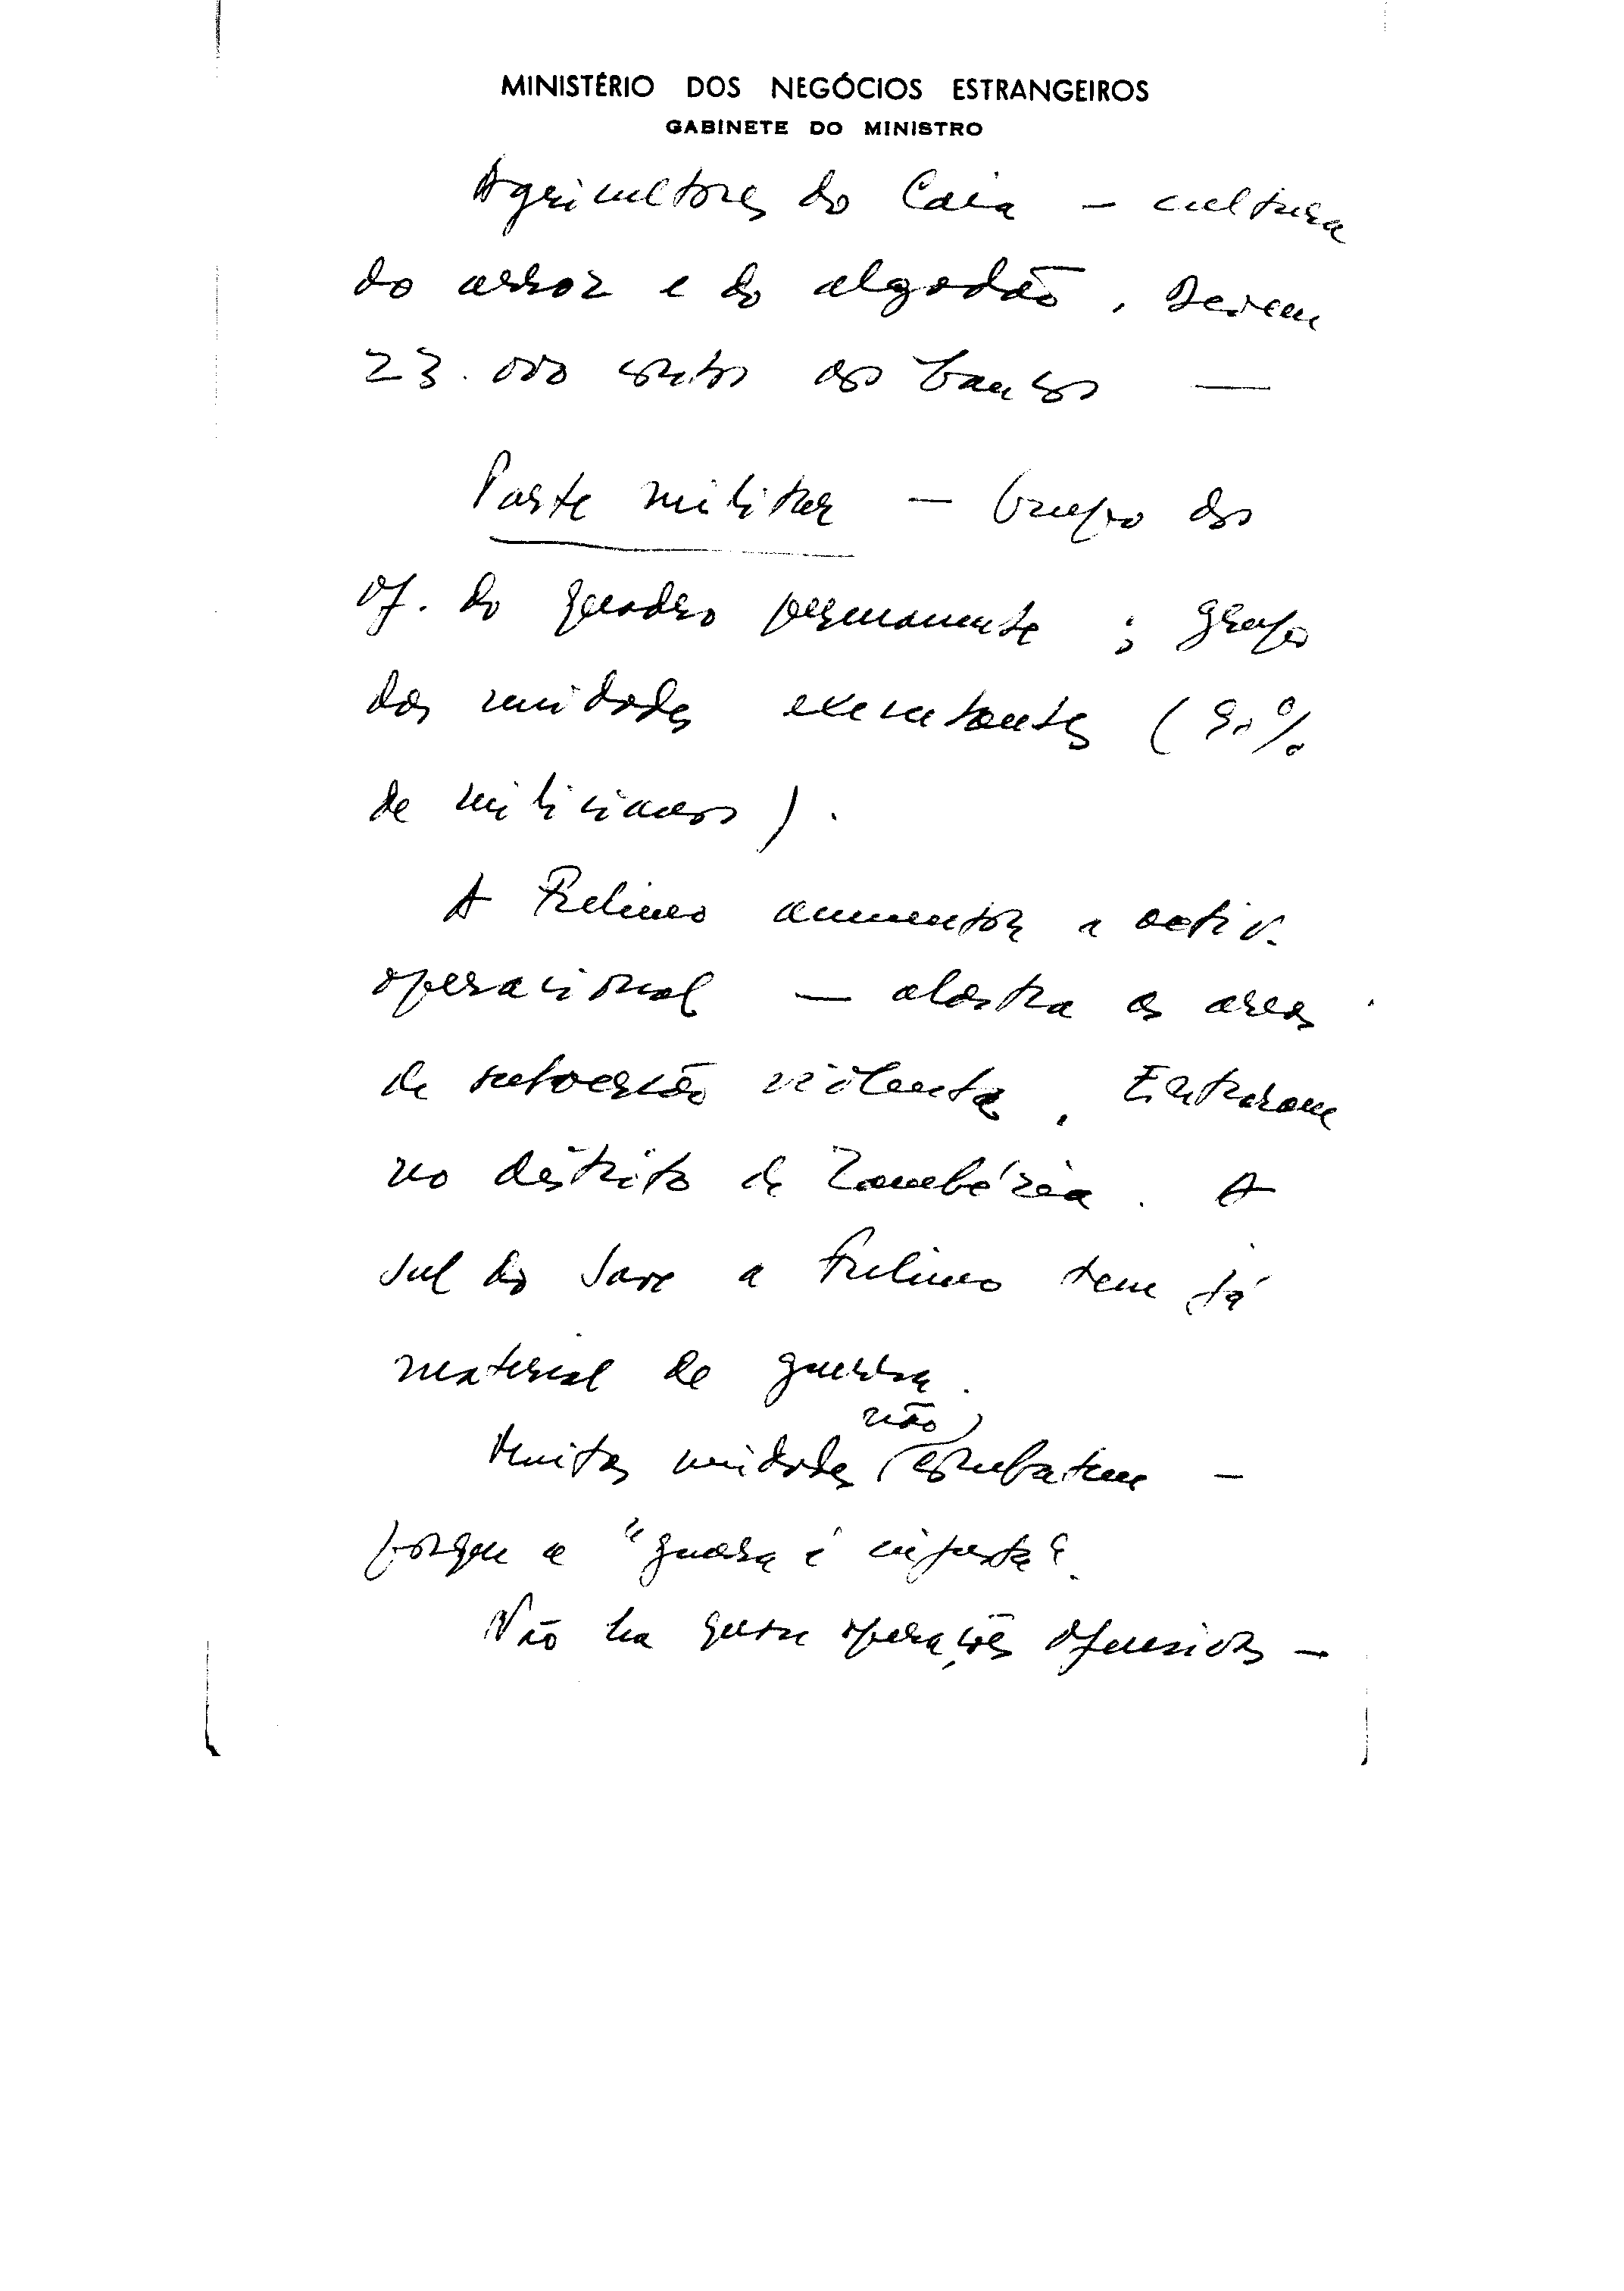 MINISTÉRIO DOS NEGÓCIOS ESTRANGEIROS
GABINETE DO MINISTRO
Agricultores do Caia – cultura
do arroz e do algodão. Devem
23.000 contos aos bancos —
Parte militar — Grupo dos
of. do quadro permanente ; grupo
das unidades executantes (90%
de milicianos).
A Frelimo aumentou a activ.
operacional — alastra as areas
de subversão violenta. Entraram
no distrito de Zambézia. A
sul do Save a Frelimo tem já
material de guerra.
não
Muitas unidades combatem –
porque a "guerra é injusta".
Não ha quase operações ofensivas –